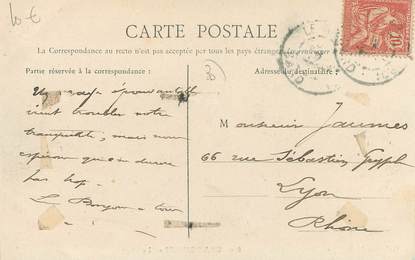 10 €
CARTE POSTALE
La Correspondance au recto n'est pas acceptée par tous les pays étrangers
Partie réservée à la correspondance :
Adresse du destinataire :
10
Un orage épouvantable
vient troubler notre
tranquillité, mais nous
espérons que ça durera
pas trop.
Le Bonjour à tous
Monsieur Jaumes
66 rue Sébastien Gryph
Lyon
Rhône